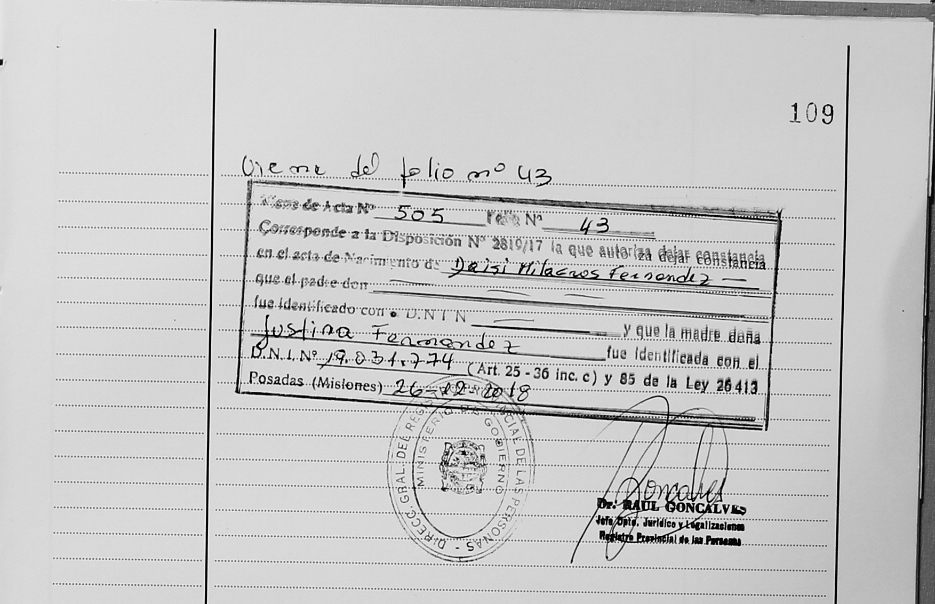 109
Viene del folio nº 43
Viene de Acta Nº 505 Folio Nº 43
Corresponde a la Disposición Nº 2819/17 la que autoriza dejar constancia
en el acta de Nacimiento de Deisi Milagros Fernandez —
que el padre don — — —
fue identificado con e D.N.I N — y que la madre doña
Justina Fernandez fue identificada con el
D.N.I. Nº 19.031.774 (Art. 25 - 36 inc. c) y 85 de la Ley 26413
Posadas (Misiones) 26-12-2018
DIRECC. GRAL. DEL REGISTRO PROVINCIAL DE LAS PERSONAS -
MINISTERIO DE GOBIERNO
Goncalves
Dr. RAUL GONCALVES
Jefe Dpto. Jurídico y Legalizaciones
Registro Provincial de las Personas